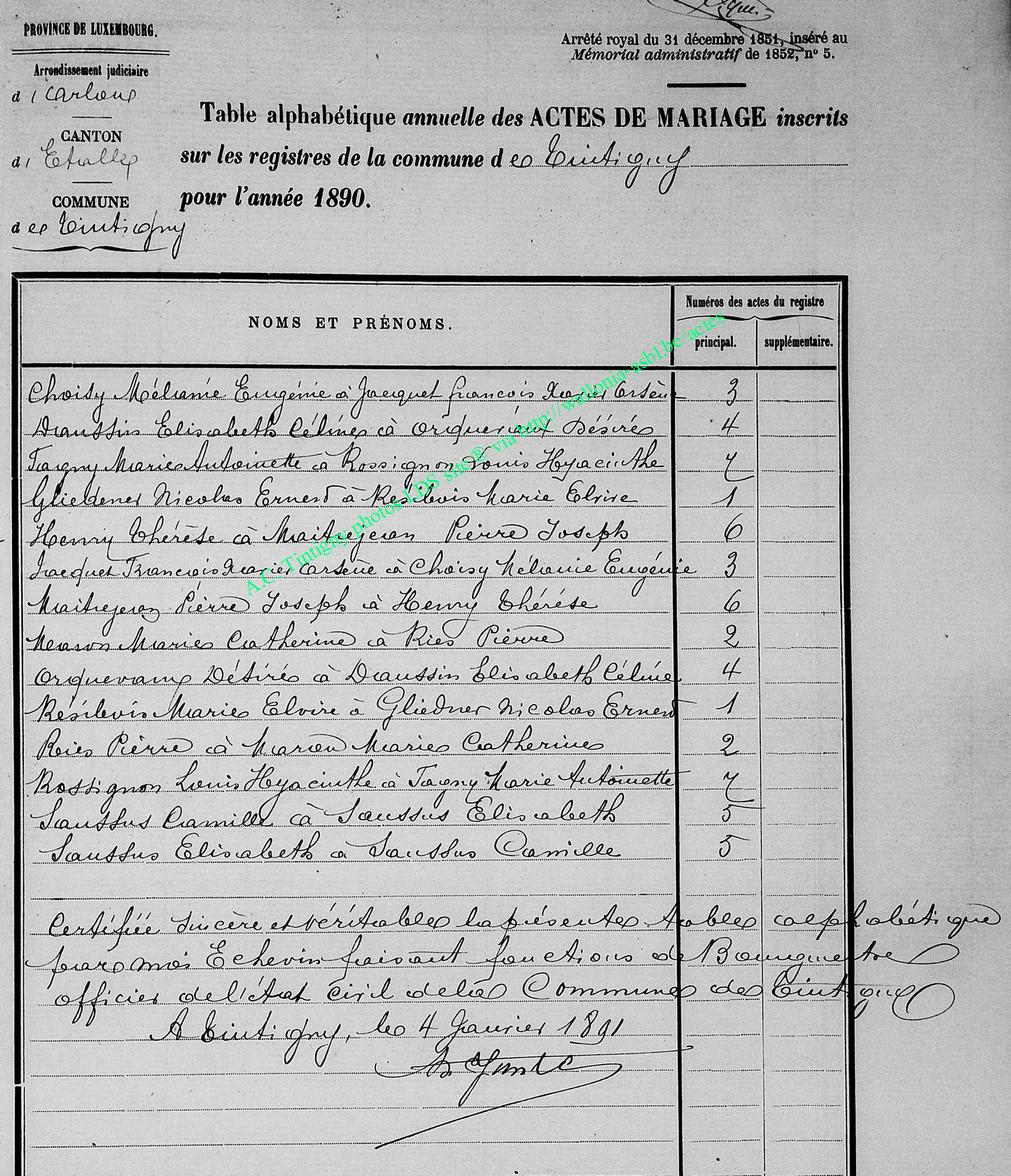 PROVINCE DE LUXEMBOURG.
Arrondissement judiciaire
d'Arlon
CANTON
d'Etalle
COMMUNE
de Tintigny
Arrêté royal du 31 décembre 1851, inséré au
Mémorial administratif de 1852, nº 5.
Table alphabétique annuelle des ACTES DE MARIAGE inscrits
sur les registres de la commune de Tintigny
pour l'année 1890.
NOMS ET PRÉNOMS.
Numéros des actes du registre
principal. supplémentaire.
Choisy Mélanie Eugénie à Jacquet françois Xavier Arsène 3
Daussin Elisabeth Céline à Orquevaux Désiré 4
Tagny Marie Antoinette à Rossignon Louis Hyacinthe 7
Gliedener Nicolas Ernest à Résilevis Marie Elvire 1
Henry Thérèse à Maitrejean Pierre Joseph 6
Jacquet François Xavier Arsène à Choisy Mélanie Eugénie 3
Maitrejean Pierre Joseph à Henry Thérése 6
Marie Catherine à Ries Pierre 2
Orquevaux Désiré à Daussin Elisabeth Céline 4
Résilevis Marie Elvire à Gliedner Nicolas Ernest 1
Ries Pierre à Marie Catherine 2
Rossignon Louis Hyacinthe à Tagny Marie Antoinette 7
Saussus Camille à Saussus Elisabeth 5
Saussus Elisabeth à Saussus Camille 5
Certifiée sincère et véritable la présente table alphabétique
par moi Echevin faisant fonctions de Bourgmestre
officier de l'état civil de la Commune de Tintigny
A Tintigny, le 4 Janvier 1891
A.C. Tintigny photos LDS site © via http://wallonia-asbl.be/actes